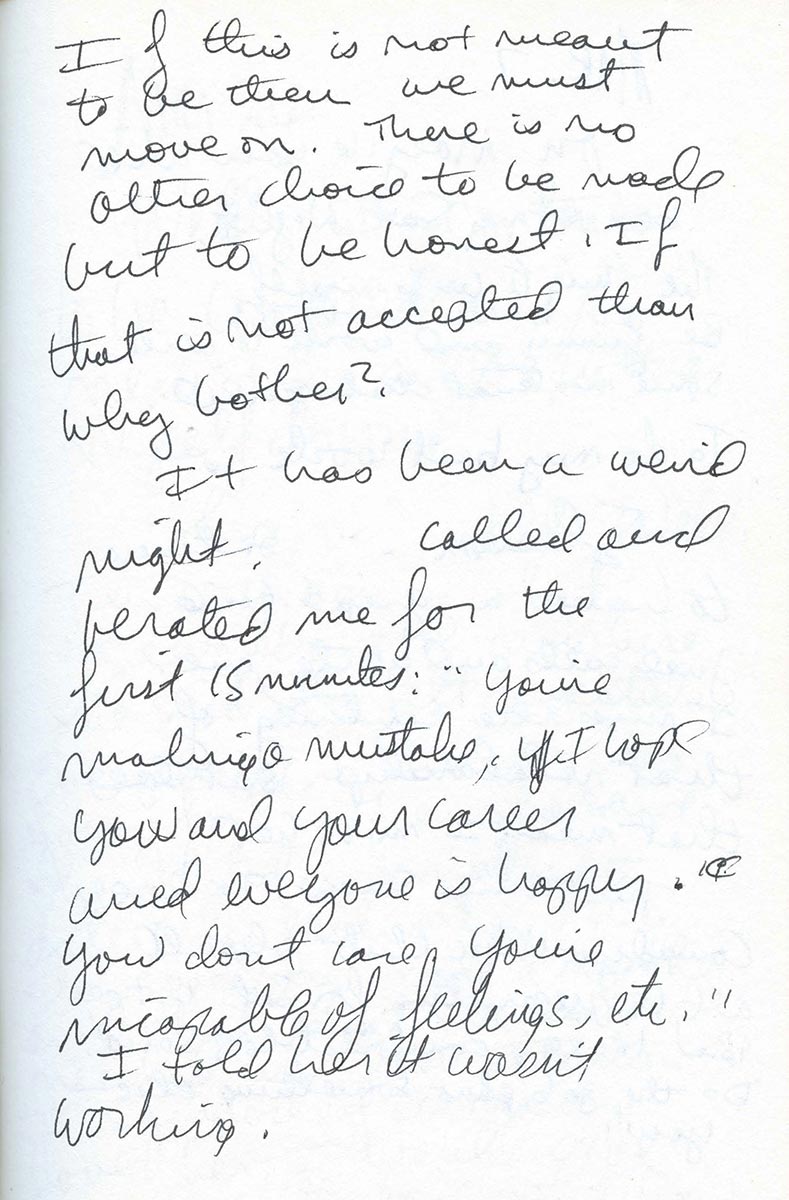 If this is not meant
to be then we must
move on. There is no
other choice to be made
but to be honest. If
that is not accepted than
why bother?
It has been a weird
night. called and
berated me for the
first 15 minutes: "you're
making a mistake, I hope
you and your career
and everyone is happy."
you don't care, you're
incapable of feelings, etc."
I told her it wasn't
working.